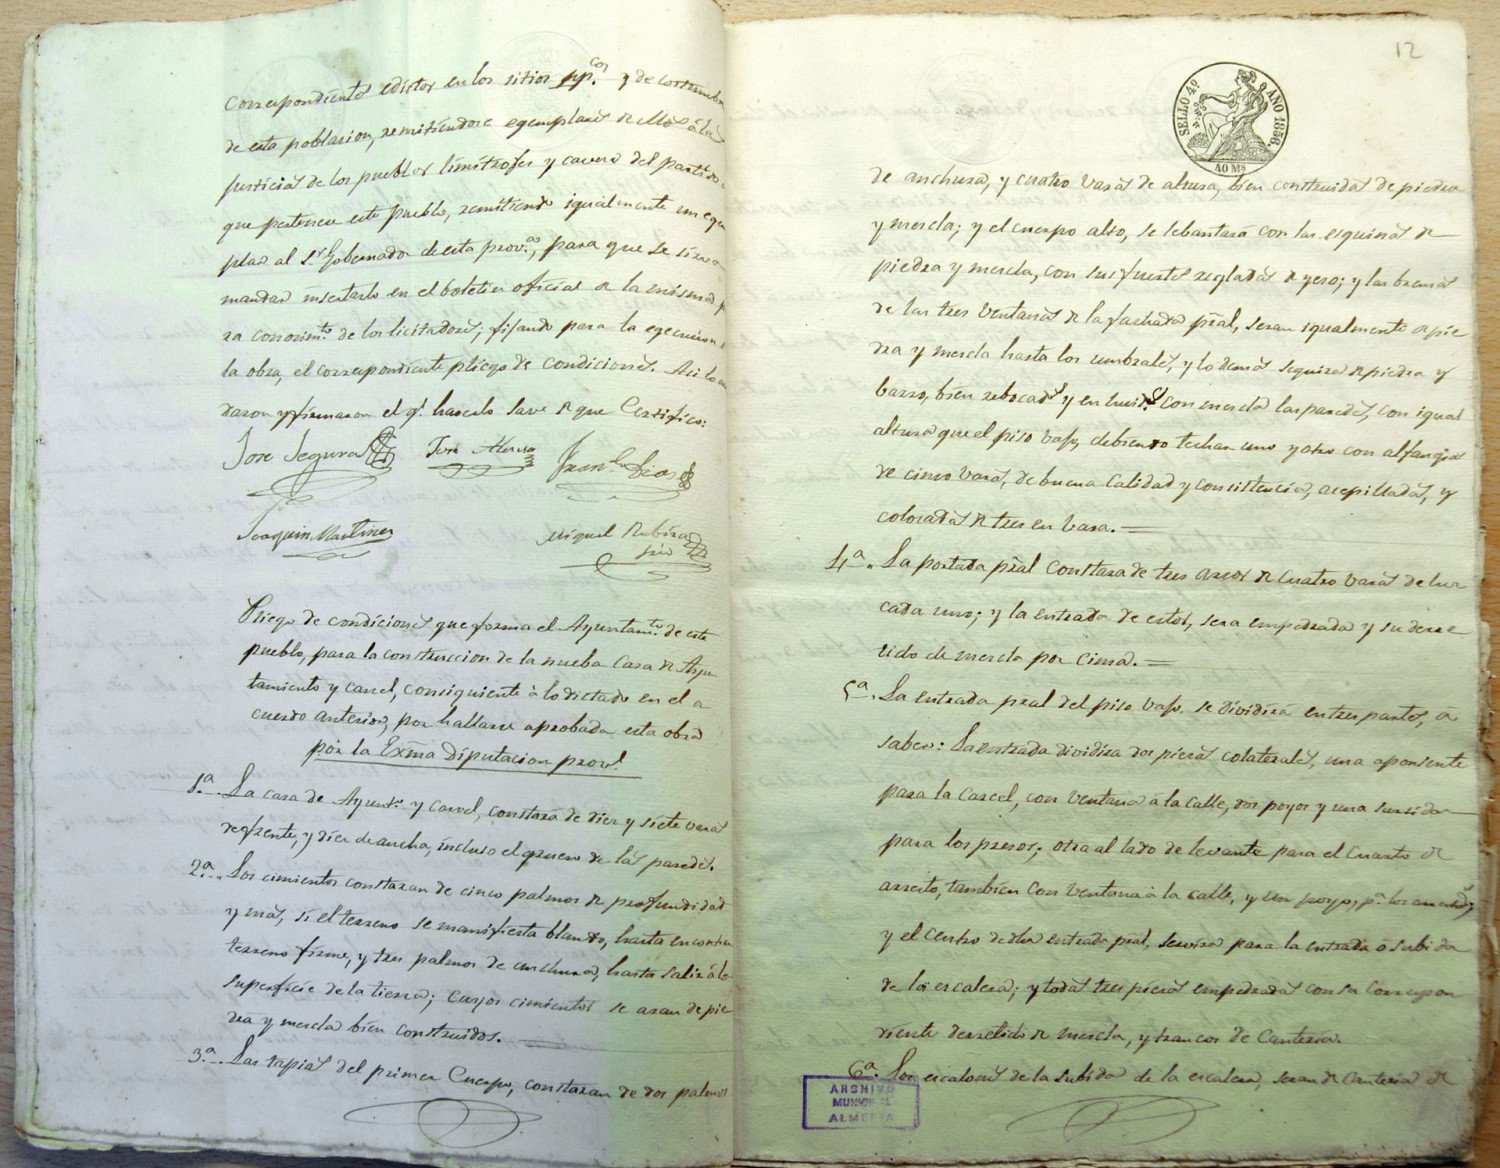 correspondientes edictos en los sitios pp.cos y de costumbre
de esta poblacion, remitiendose egemplares de ellos á las
justicias de los pueblos limítrofes y cavera del partido a
que pertenece este pueblo, remitiendo igualmente un egem
plar al Sr. Gobernador de esta prov.a, para que se sirva
mandar insertarlo en el boletin oficial de la misma pa
ra conocim.to de los licitadores; fijando para la egecucion de
la obra, el correspondiente pliego de condiciones. Asi lo acor
daron y firmaron el q.e hacerlo save de que Certifico:
Jose Segura
Jose
Fran.co Dias
Joaquin Martinez
Miguel Rubira
srio
Pliego de condiciones que forma el Ayuntam.to de este
pueblo, para la construccion de la nueba Casa de Ayun
tamiento y carcel, consiguiente á lo dictado en el a
cuerdo anterior, por hallarse aprobada esta obra
por la Exma Diputacion provl.
1.a La casa de Ayunt.o y carcel, constara de diez y siete varas
de frente, y diez de ancha, incluso el grueso de las paredes.
2.a Los cimientos constaran de cinco palmos de profundidad
y mas, si el terreno se manifiesta blando, hasta encontrar
terreno firme, y tres palmos de anchura, hasta salir á la
superficie de la tierra; cuyos cimientos se aran de pie
dra y mescla bien construidos.
3.a Las tapias del primer Cuerpo, constaran de dos palmos
12
SELLO 4º AÑO 1856.
40 Ms
de anchura, y cuatro varas de altura, bien construidas de piedra
y mescla; y el cuerpo alto, se lebantará con las esquinas de
piedra y mescla, con sus fuertes regladas de yeso; y las
de las tres ventanas de la fachada pral, seran igualmente de pie
dra y mescla hasta los umbrales, y lo demas seguira de piedra y
barro, bien rebocados y enlucidos con mescla las paredes, con igual
altura que el piso vajo, debiendo techar uno y otro con alfangias
de cinco varas, de buena calidad y consistencia, acepilladas, y
colocadas de tres en vara.
4.a La portada pral constara de tres arcos de cuatro varas de luz
cada uno; y la entrada de estos, sera empedrada y su derre
tido de mescla por cima.
5.a La entrada pral del piso vajo se dividirá en tres partes, á
saber: La entrada dividira dos piezas colaterales, una a poniente
para la Carcel, con ventana á la calle, dos poyos y una
para los presos; otra al lado de levante para el Cuarto de
arresto, tambien con ventana á la calle, y un poyo, p.a los
y el centro de dha entrada pral, servira para la entrada ó subida
de la escalera; y todas tres piezas empedradas con su correspon
diente derretido de mescla, y trancos de Canteria.
6.a Los escalones de la subida de la escalera, seran de Canteria de
ARCHIVO
MUNICIPAL
ALMERIA